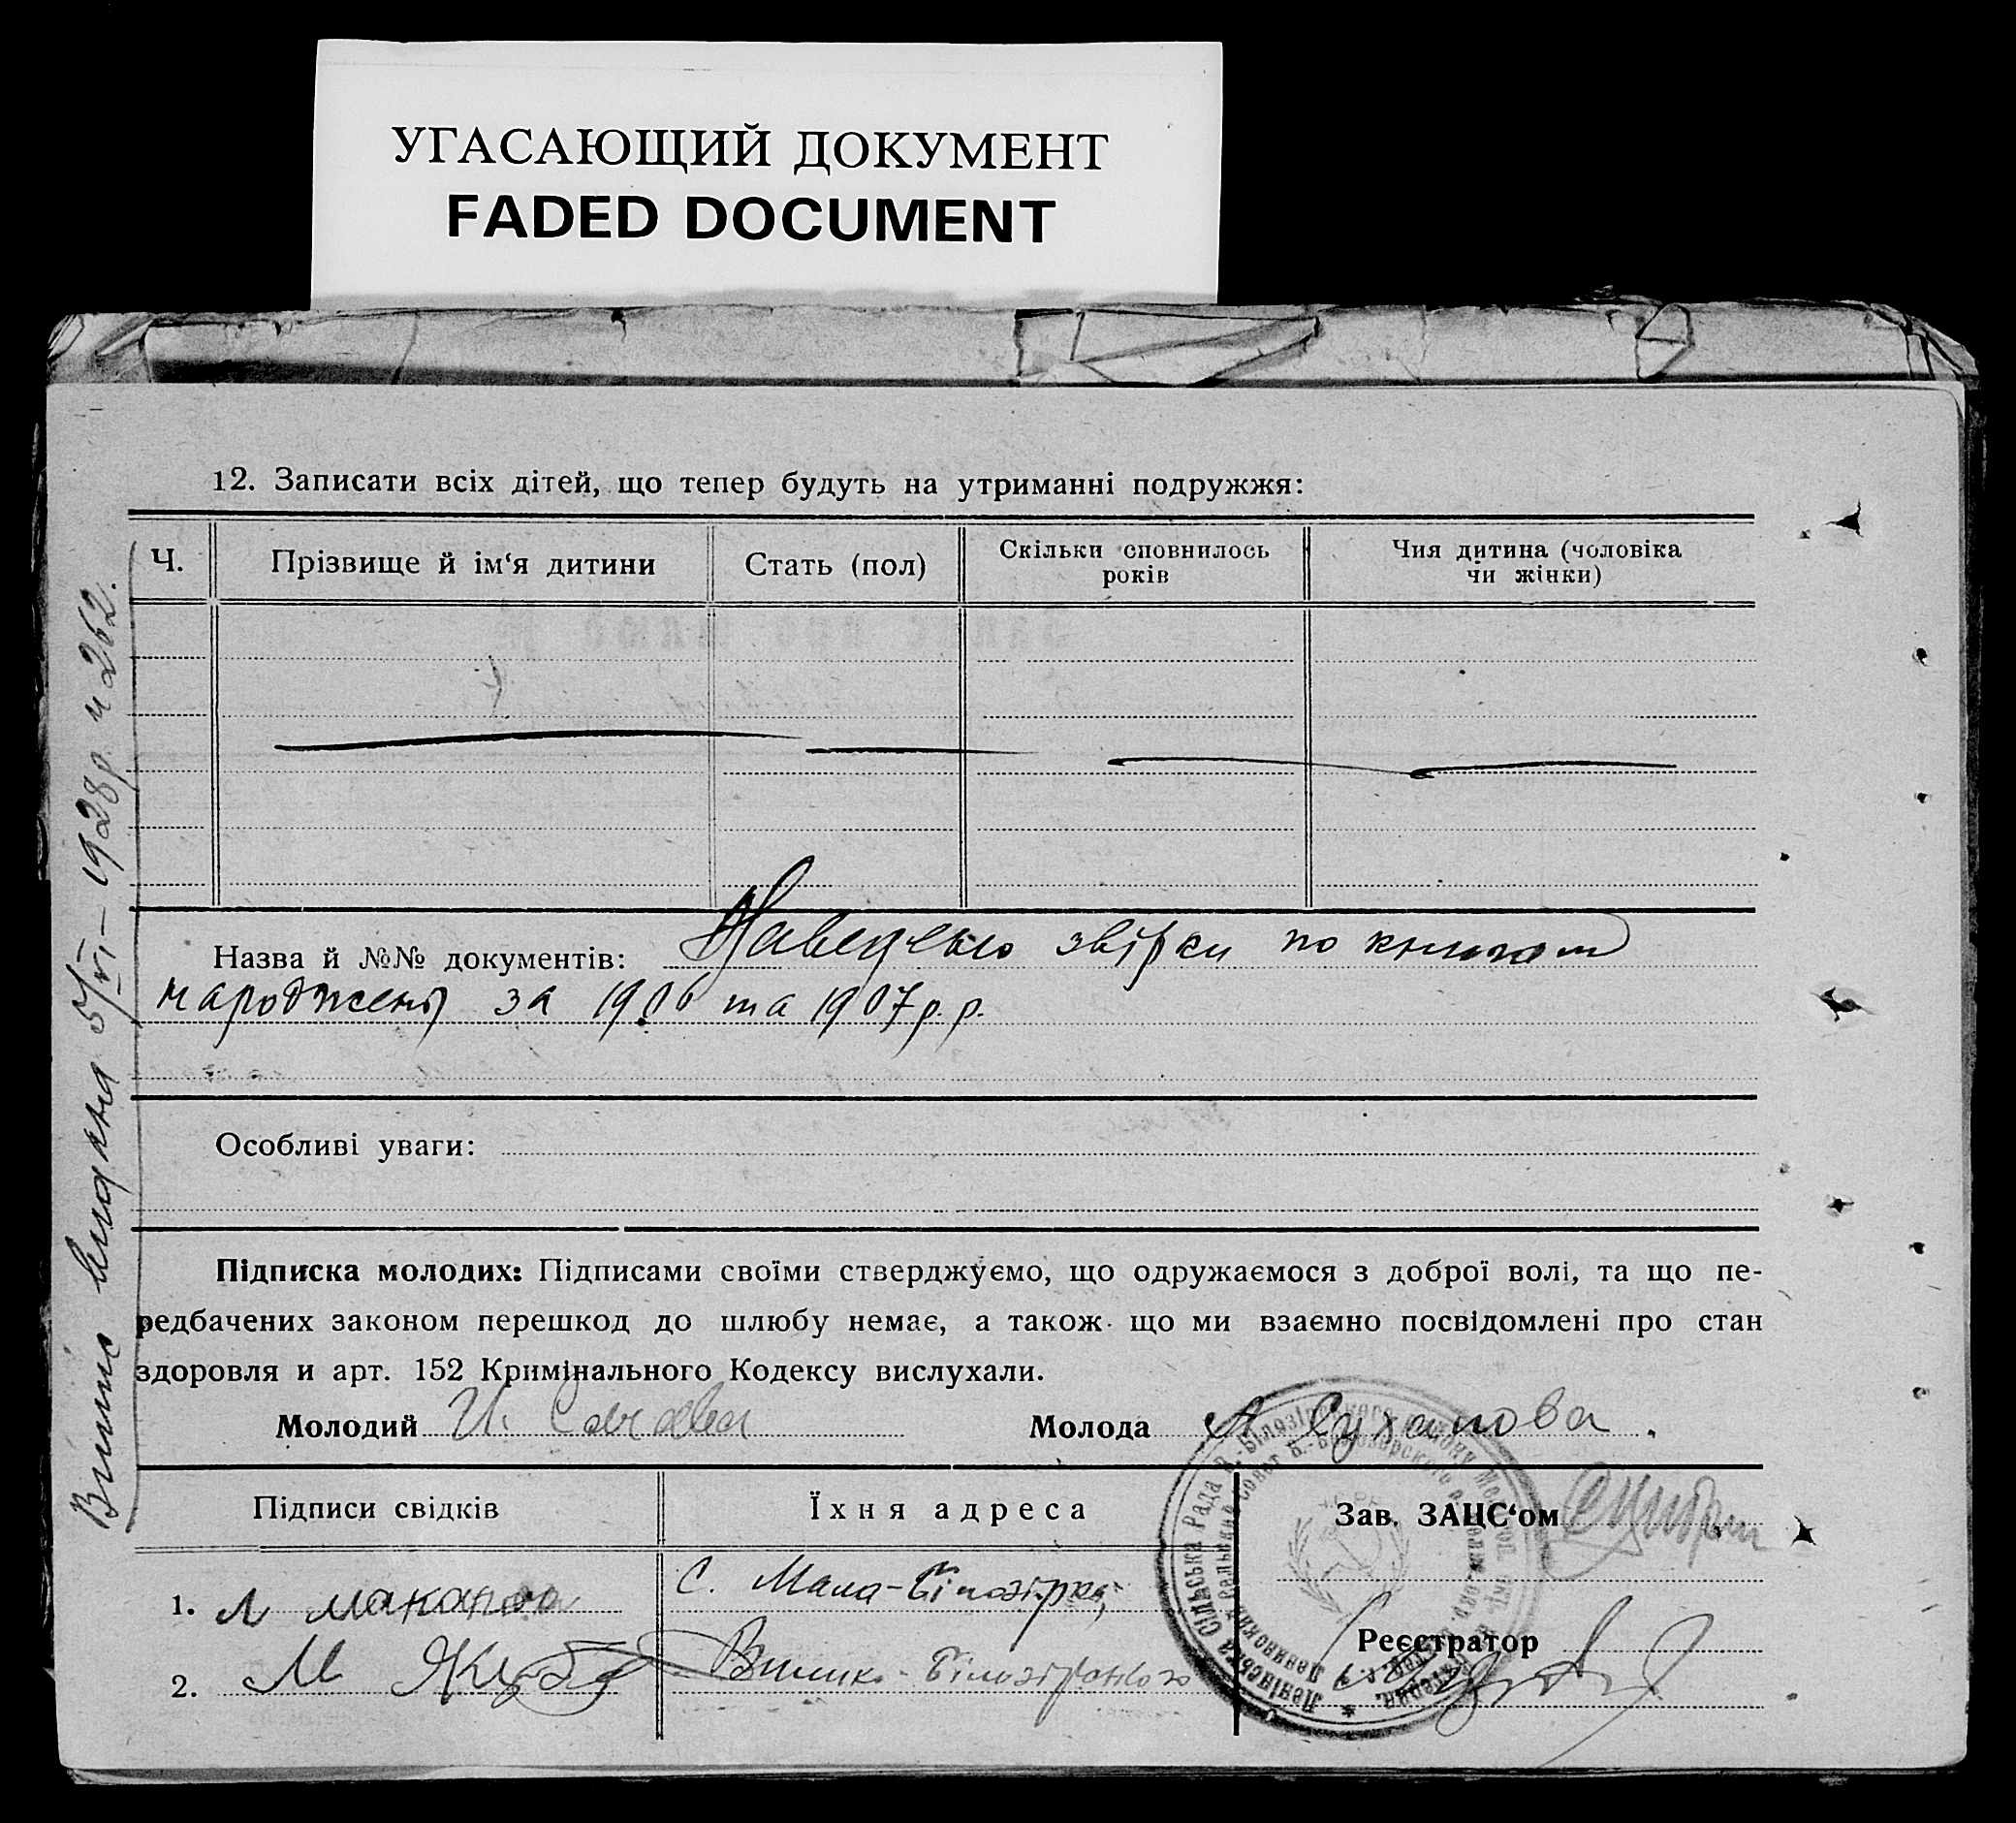 УГАСАЮЩИЙ ДОКУМЕНТ
FADED DOCUMENT
12. Записати всіх дітей, що тепер будуть на утриманні подружжя:
Ч.
Прізвище й ім‘я дитини
Стать (пол)
Скільки сповнилось
років
Чия дитина (чоловіка
чи жінки)
Назва й №№ документів: Наведено звірки по книгам
народженя за 1906 та 1907 р. р.
Особливі уваги:
Підписка молодих: Підписами своїми стверджуємо, що одружаємося з доброї волі, та що пе-
редбачених законом перешкод до шлюбу немає, а також що ми взаємно посвідомлені про стан
здоровля и арт. 152 Кримінального Кодексу вислухали.
Молодий И.
Молода А Суханова.
Підписи свідків
Їхня адреса
Зав. ЗАЦС‘ом
1. Л
с. Мала-Білозірка,
2. М
Реєстратор
Випис видана 5/VI–1928 р. ч 262.
Сільська Рада